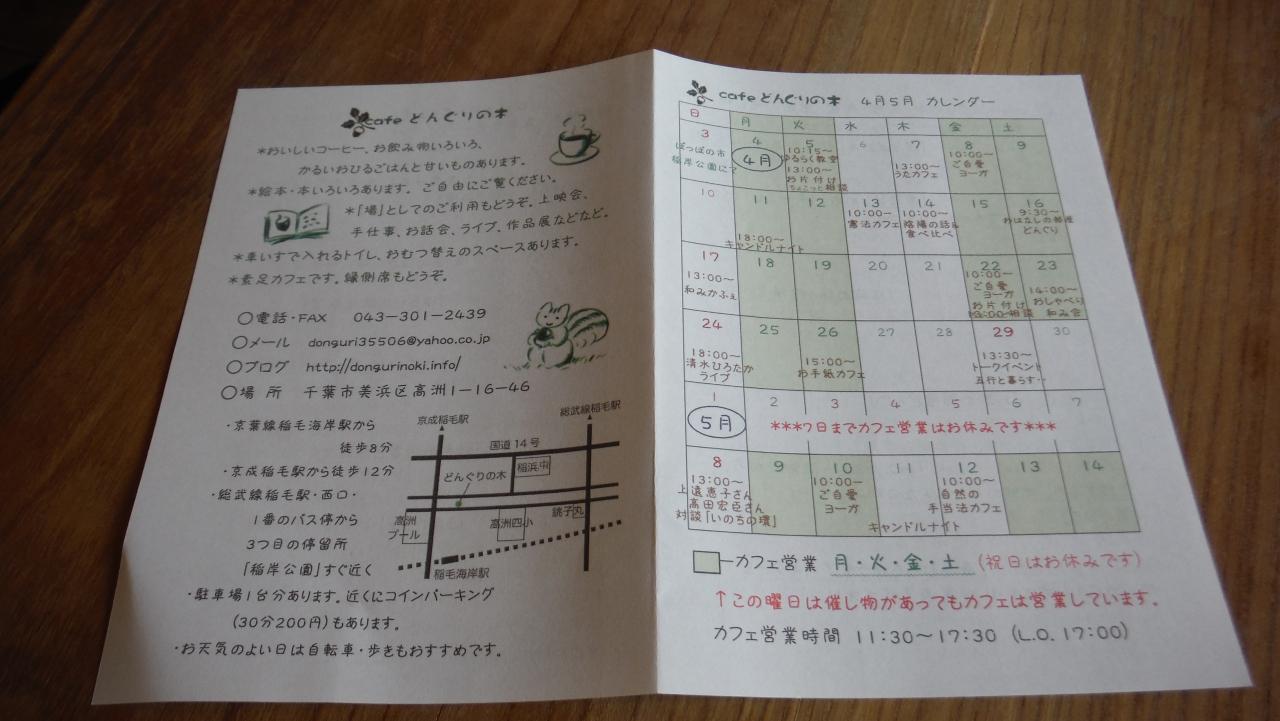 cafe どんぐりの木
*おいしいコーヒー、お飲み物いろいろ、
かるいおひるごはんと甘いものあります。
*絵本・本いろいろあります。ご自由にご覧ください。
*「場」としてのご利用もどうぞ。上映会、
手仕事、お話会、ライブ、作品展などなど。
*車いすで入れるトイレ、おむつ替えのスペースあります。
*素足カフェです。縁側席もどうぞ。
○電話・FAX 043-301-2439
○メール donguri35506@yahoo.co.jp
○ブログ http://dongurinoki.info/
○場 所 千葉市美浜区高洲1-16-46
・京葉線稲毛海岸駅から
徒歩8分
・京成稲毛駅から徒歩12分
・総武線稲毛駅・西口・
1番のバス停から
3つ目の停留所
「稲岸公園」すぐ近く
・駐車場1台分あります。近くにコインパーキング
(30分200円)もあります。
・お天気のよい日は自転車・歩きもおすすめです。
京成稲毛駅
総武線稲毛駅
国道14号
どんぐりの木
稲浜中
高洲
プール
高洲四小
銚子丸
稲毛海岸駅
cafe どんぐりの木 4月5月 カレンダー
日 月 火 水 木 金 土
3 4 5 6 7 8 9
ぽっぽの市
稲岸公園にて
4月
10:15~
ゆるらく教室
13:00~
お片付け
ちょこっと相談
13:00~
うたカフェ
10:00~
ご自愛
ヨーガ
10 11 12 13 14 15 16
18:00~
キャンドルナイト
10:00~
憲法カフェ
10:00~
陰陽の話&
食べ比べ
9:30~
おはなしの部屋
どんぐり
17 18 19 20 21 22 23
13:00~
和みかふぇ
10:00~
ご自愛
ヨーガ
お片付け
13:00~相談
14:00~
おしゃべり
和み会
24 25 26 27 28 29 30
18:00~
清水ひろたか
ライブ
15:00~
お手紙カフェ
13:30~
トークイベント
五行と暮らす・・
1 2 3 4 5 6 7
5月
***7日までカフェ営業はお休みです***
8 9 10 11 12 13 14
13:00~
上遠恵子さん
高田宏臣さん
対談「いのちの環」
10:00~
ご自愛
ヨーガ
キャンドルナイト
10:00~
自然の
手当法カフェ
ーカフェ営業 月・火・金・土 (祝日はお休みです)
↑この曜日は催し物があってもカフェは営業しています。
カフェ営業時間 11:30~17:30 (L.O. 17:00)